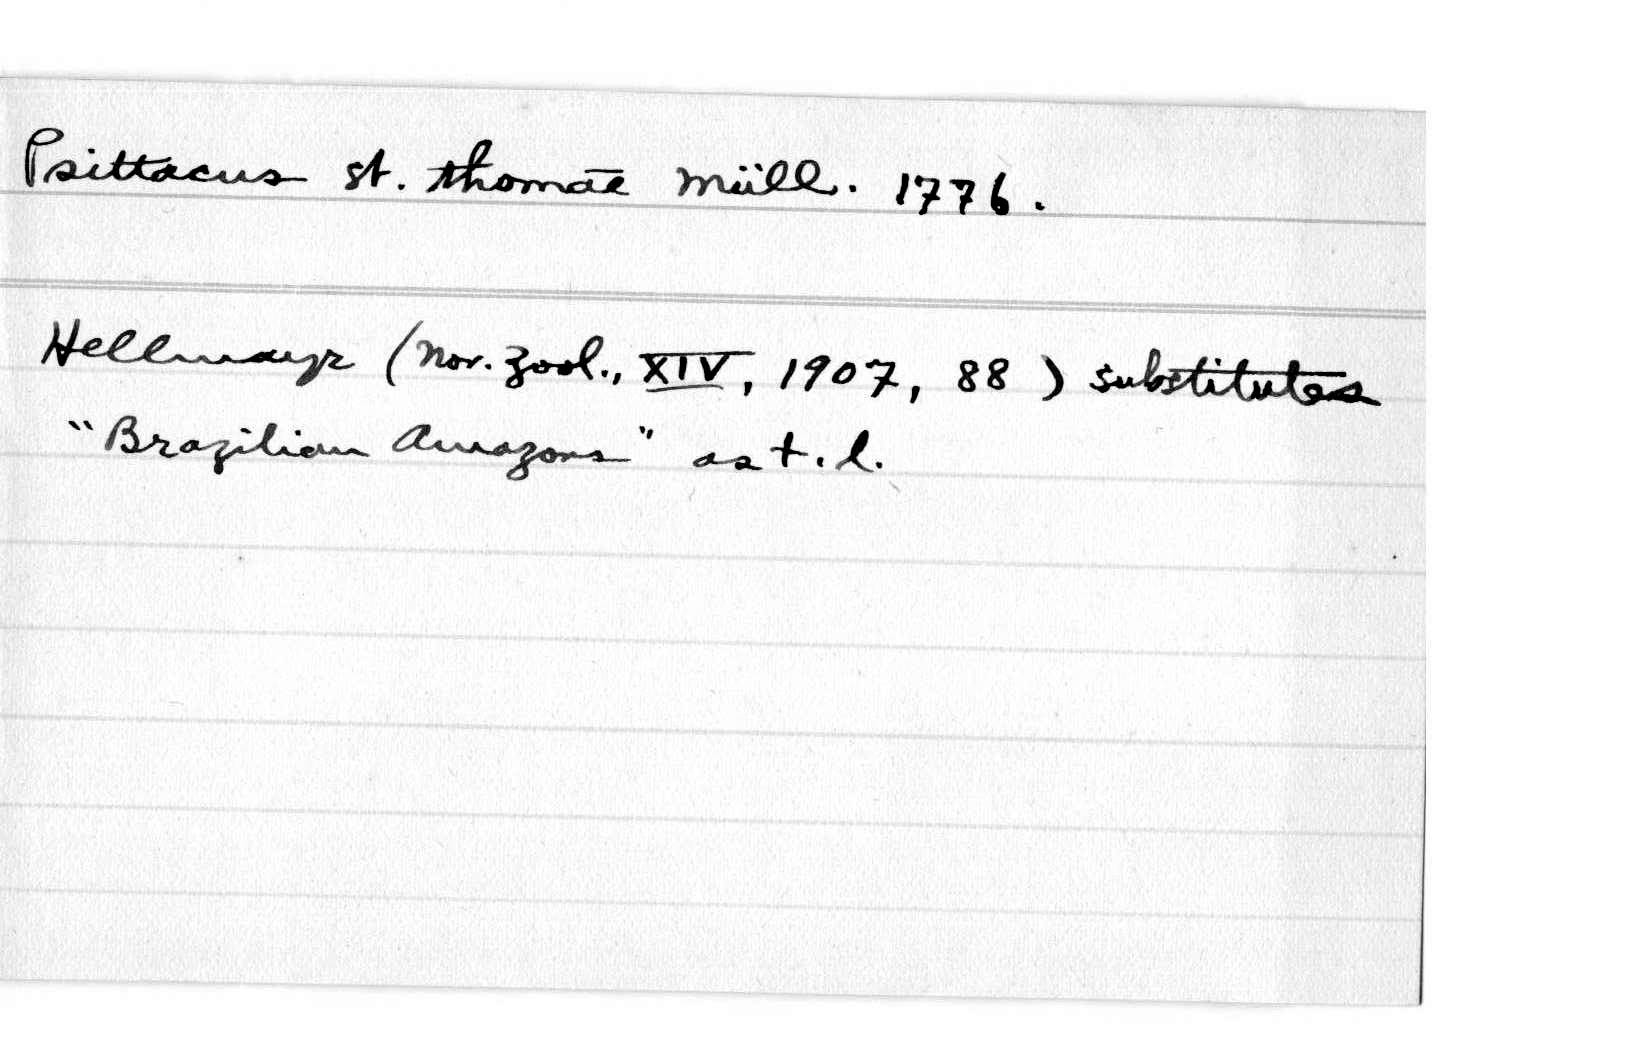 Psittacus st. thomae Müll. 1776.
Hellmayr (Nov. Zool., XIV, 1907, 88) substitutes
"Brazilian Amazons" as t. l.